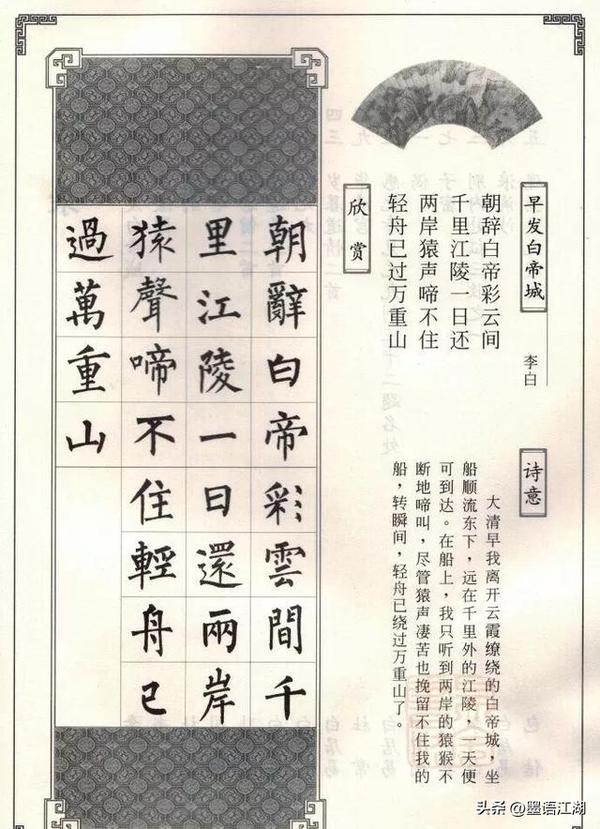 早发白帝城
李白
朝辞白帝彩云间
千里江陵一日还
两岸猿声啼不住
轻舟已过万重山
诗意
大清早我离开云霞缭绕的白帝城，坐
船顺流东下，远在千里外的江陵，一天便
可到达。在船上，我只听到两岸的猿猴不
断地啼叫，尽管猿声凄苦也挽留不住我的
船，转瞬间，轻舟已绕过万重山了。
欣赏
朝辭白帝彩雲間千
里江陵一日還兩岸
猿聲啼不住輕舟已
過萬重山
头条 @墨语江湖